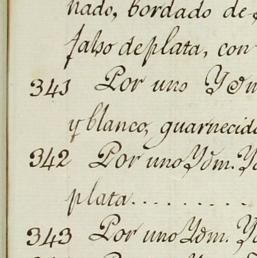 nado, bordado de
falso de plata, con
341 Por uno Ydm
y blanco, guarnecid
342 Por uno Ydm. Y
plata..........
343 Por uno Ydm. Y
Por uno